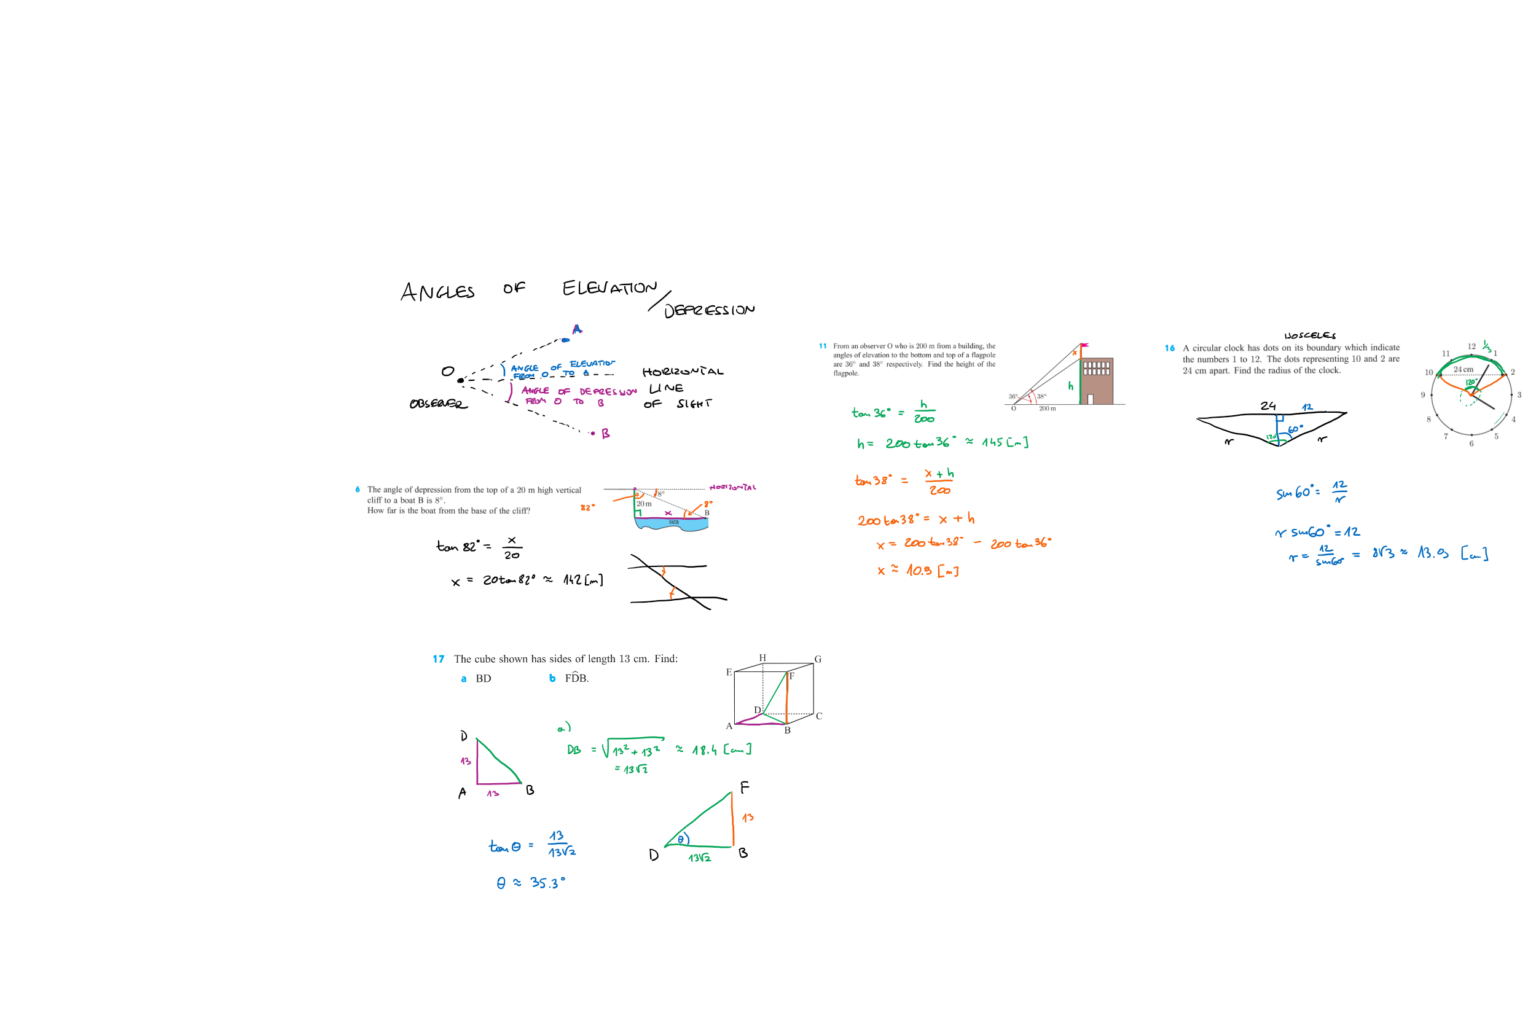 ANGLES OF ELEVATION/
DEPRESSION
A
O
OBSERVER
ANGLE OF ELEVATION
FROM O TO A
HORIZONTAL
LINE
OF SIGHT
ANGLE OF DEPRESSION
FROM O TO B
B
6 The angle of depression from the top of a 20 m high vertical
cliff to a boat B is 8°.
How far is the boat from the base of the cliff?
HORIZONTAL
82°
8°
20 m
x
8°
B
sea
tan 82° = x/20
x = 20 tan 82° ≈ 142 [m]
11 From an observer O who is 200 m from a building, the
angles of elevation to the bottom and top of a flagpole
are 36° and 38° respectively. Find the height of the
flagpole.
x
h
36°
38°
O
200 m
tan 36° = h/200
h = 200 tan 36° ≈ 145 [m]
tan 38° = x + h/200
200 tan 38° = x + h
x = 200 tan 38° - 200 tan 36°
x ≈ 10.9 [m]
16 A circular clock has dots on its boundary which indicate
the numbers 1 to 12. The dots representing 10 and 2 are
24 cm apart. Find the radius of the clock.
12
1/3
11
1
10
24 cm
2
120°
9
3
8
4
7
6
5
24
12
60°
r
r
sin 60° = 12/r
r sin 60° = 12
r = 12/sin 60° = 8√3 ≈ 13.9 [cm]
17 The cube shown has sides of length 13 cm. Find:
a BD
b FD̂B.
H
G
E
F
D
C
A
B
D
13
A
13
B
a)
DB = √13² + 13² ≈ 18.4 [cm]
= 13√2
F
13
θ
D
13√2
B
tan θ = 13/13√2
θ ≈ 35.3°